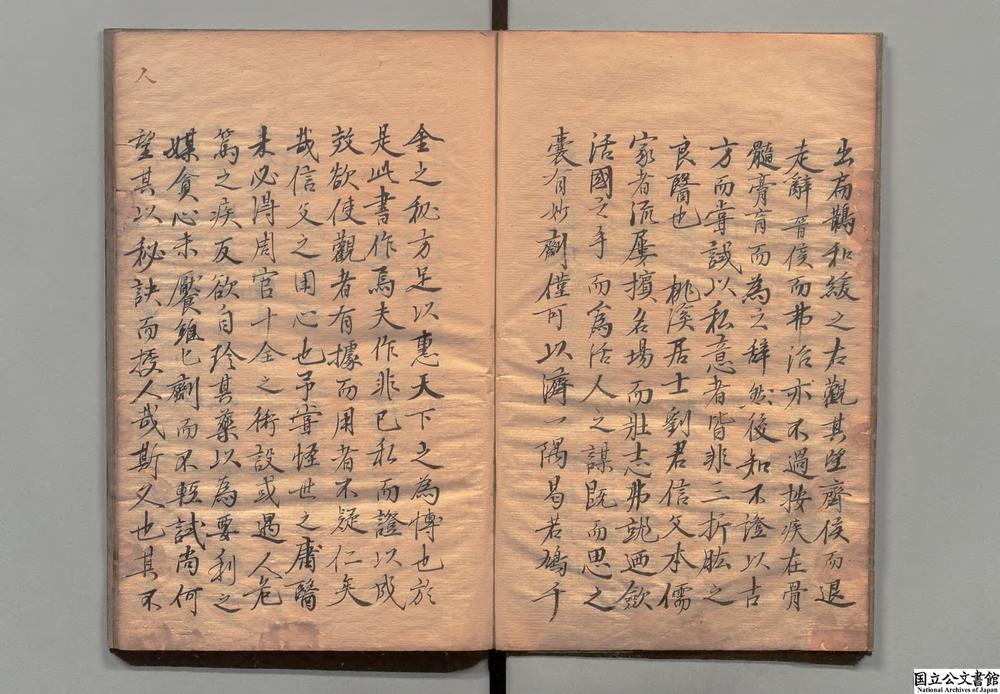 出扁鵲和緩之右觀其望齊侯而退
走辭晉侯而弗治亦不過按疾在骨
髓膏肓而為之辭然後知不證以古
方而嘗試以私意者皆非三折肱之
良醫也 桃溪居士劉君信父本儒
家者流屢擯名場而壯志弗就迺斂
活國之手而為活人之謀既而思之
囊有妙劑僅可以濟一隅曷若鳩千
金之秘方足以惠天下之為博也於
是此書作焉夫作非已私而證以成
效欲使觀者有據而用者不疑仁矣
哉信父之用心也予嘗怪世之庸醫
未必得周官十全之術設或遇人危
篤之疾反欲自珍其藥以為要利之
媒貪心未饜雖匕劑而不輕試尚何
望其以秘訣而授人哉斯人也其不
人
国立公文書館
National Archives of Japan